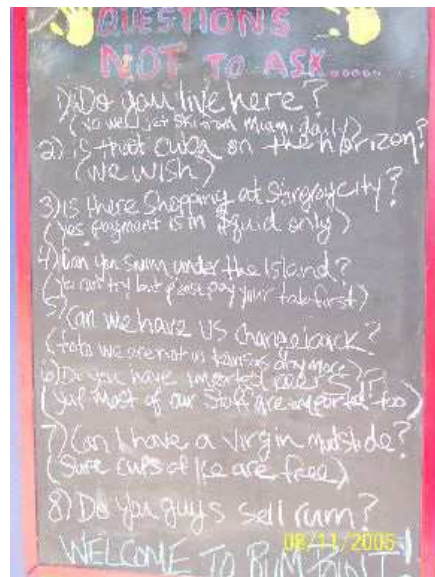 QUESTIONS
NOT TO ASK.....
1) Do you live here?
(No we jet ski from Miami daily)
2) is that Cuba on the horizon?
(we wish)
3) is there Shopping at Stingray city?
(yes payment is in squid only)
4) Can you swim under the Island?
(You can try but please pay your tab first)
5) Can we have US change
(toto we are not in Kansas anymore)
6) Do you have imported beers?
(yup most of our staff are imported too)
7) Can I have a virgin mudslide?
(Sure cups of Ice are free)
8) Do you guys sell rum?
08/11/2005
WELCOME TO RUM POINT!